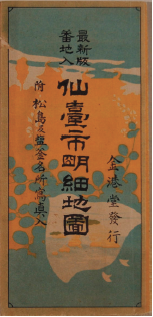 最新版
番地入
仙臺市明細地圖
附松島及鹽釜名所寫真入
金港堂發行